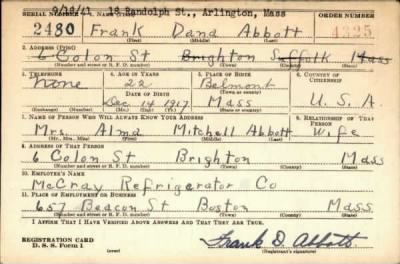 9/18/41 18 Randolph St., Arlington, Mass
SERIAL NUMBER 1. NAME (Print) ORDER NUMBER
2480 Frank Dana Abbott 4325
(First) (Middle) (Last)
2. ADDRESS (Print)
6 Colon St Brighton Suffolk Mass
(Number and street or R. F. D. number) (Town) (County) (State)
3. TELEPHONE 4. AGE IN YEARS 5. PLACE OF BIRTH 6. COUNTRY OF CITIZENSHIP
None 22 Belmont
DATE OF BIRTH (Town or county)
Dec 14 1917 Mass U. S. A.
(Exchange) (Number) (Mo.) (Day) (Yr.) (State or country)
7. NAME OF PERSON WHO WILL ALWAYS KNOW YOUR ADDRESS 8. RELATIONSHIP OF THAT PERSON
Mrs. Alma Mitchell Abbott Wife
(Mr., Mrs., Miss) (First) (Middle) (Last)
9. ADDRESS OF THAT PERSON
6 Colon St Brighton Mass
(Number and street or R. F. D. number) (Town) (County) (State)
10. EMPLOYER'S NAME
McCray Refrigerator Co
11. PLACE OF EMPLOYMENT OR BUSINESS
657 Beacon St Boston Mass
(Number and street or R. F. D. number) (Town) (County) (State)
I AFFIRM THAT I HAVE VERIFIED ABOVE ANSWERS AND THAT THEY ARE TRUE.
REGISTRATION CARD
D. S. S. Form 1
Frank D. Abbott
(Registrant's signature)